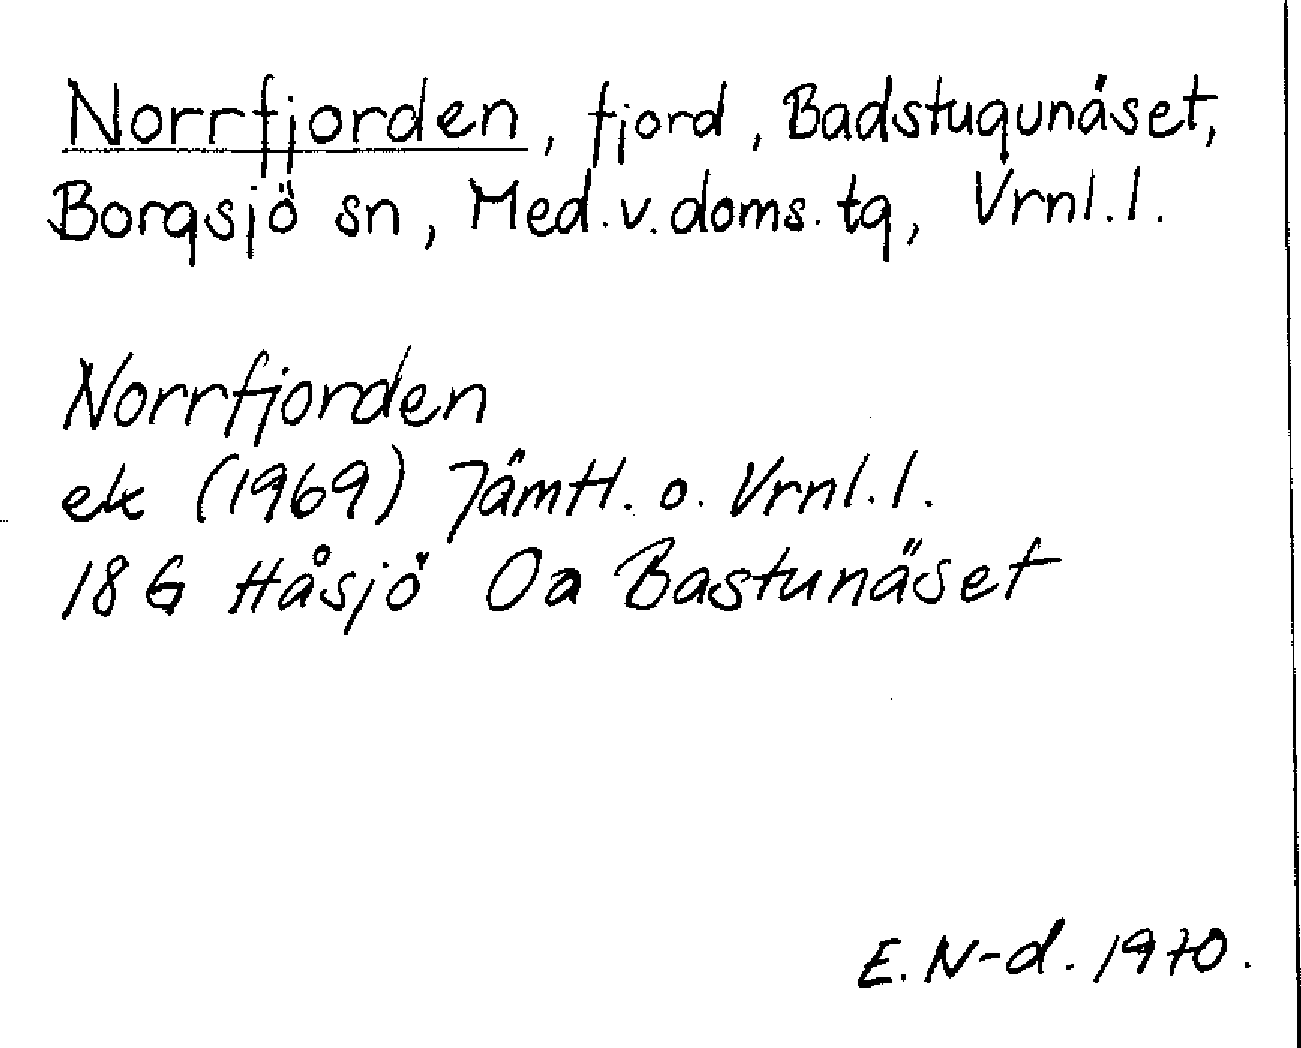 Norrfjorden, fjord, Badstugunäset,
Borgsjö sn, Med.v.doms.tg, Vrnl.l.
Norrfjorden
ek (1969) Jämtl. o. Vrnl.l.
18 G Håsjö Oa Bastunäset
E. N-d. 1970.